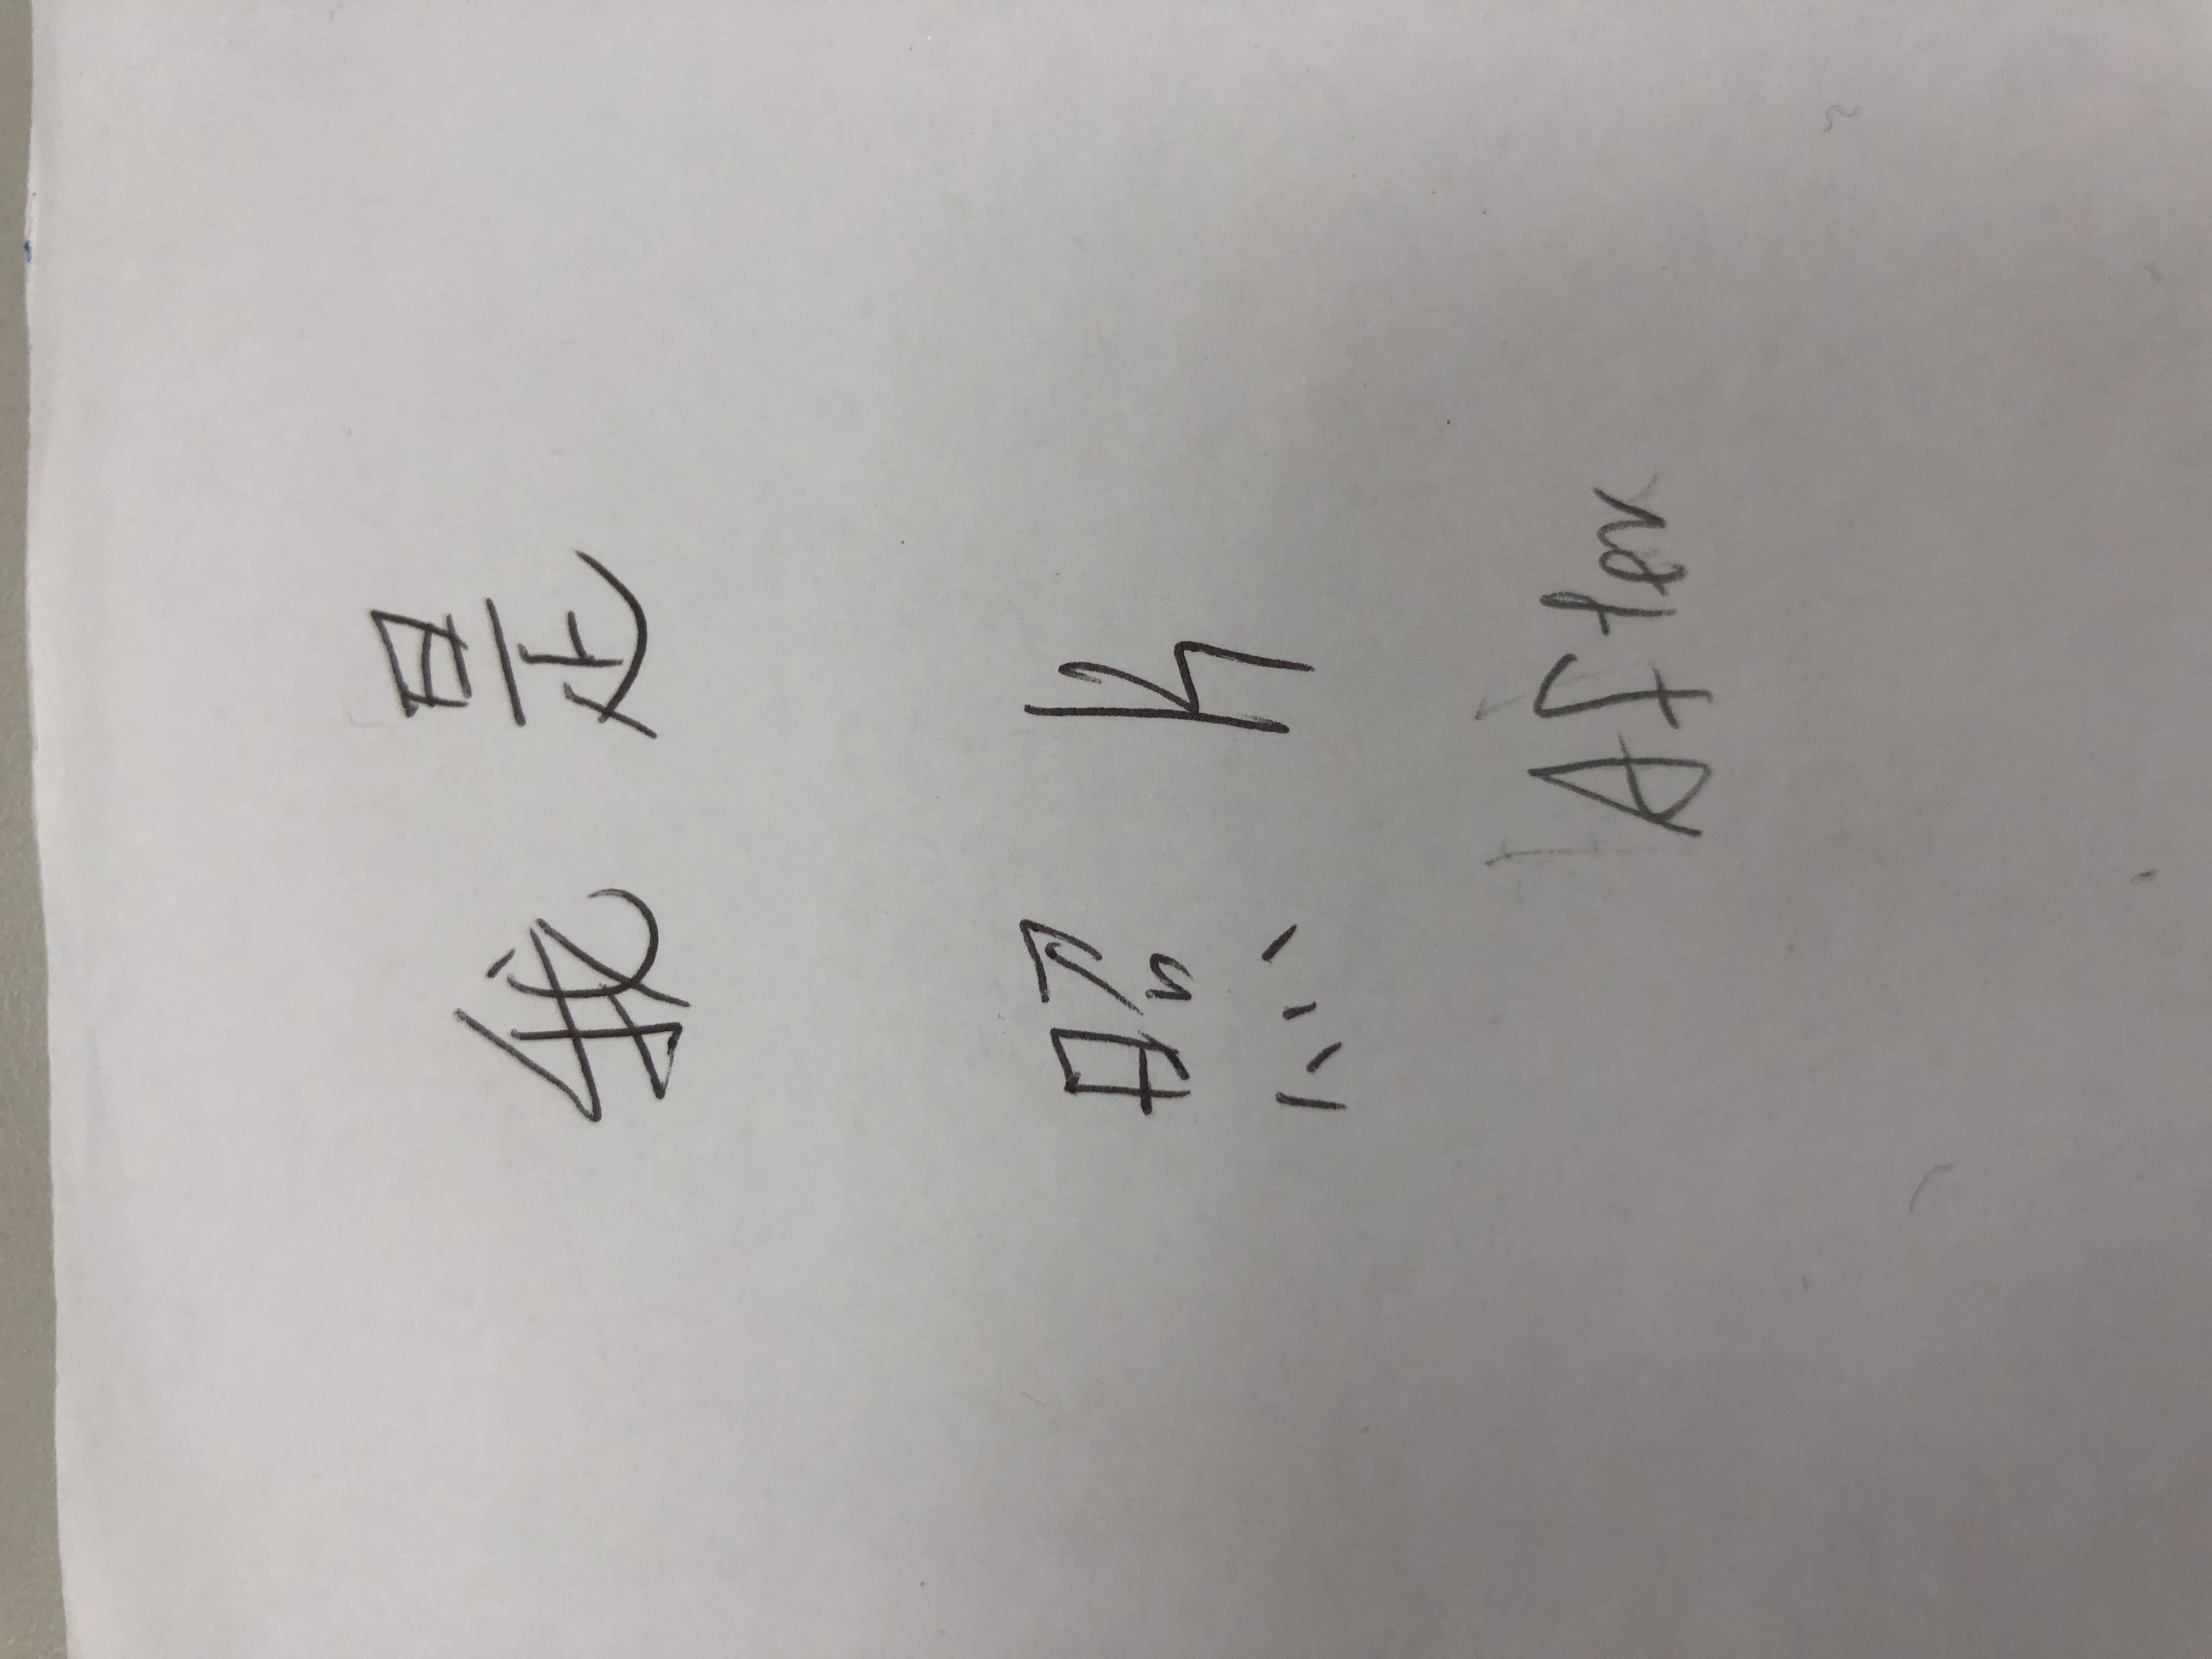 我是
照片
After